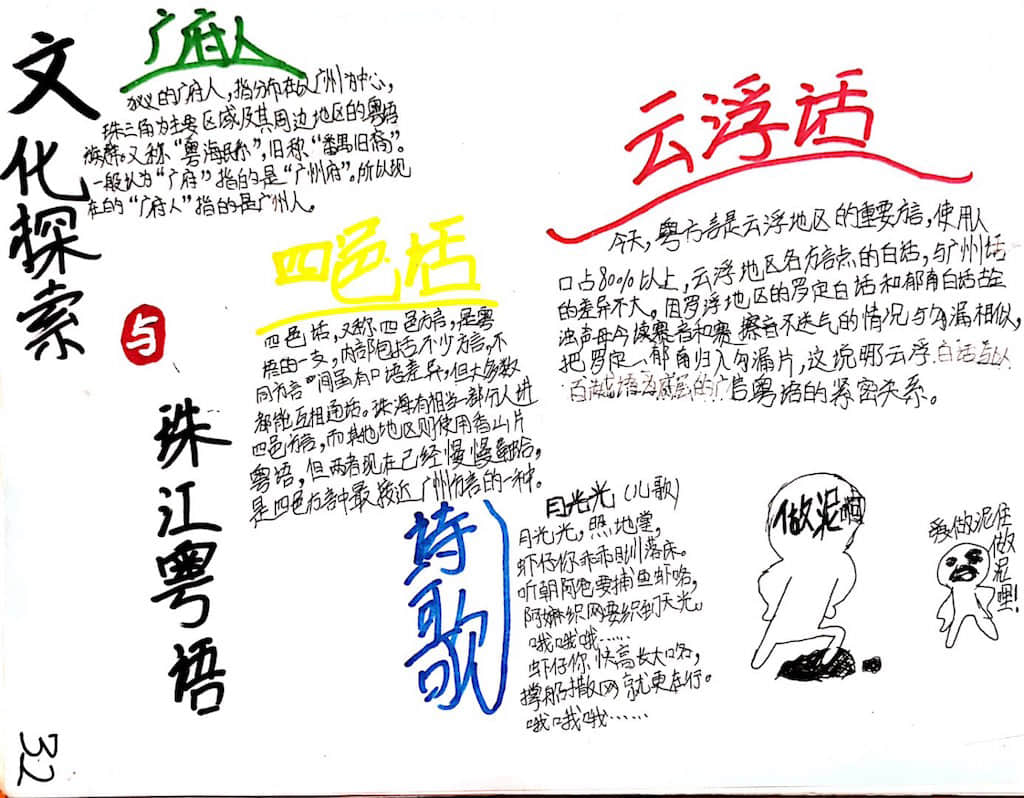 文化探索
与
珠江粤语
32
广府人
的广府人，指分布在以广州为中心，
珠三角为主要区域及其周边地区的粤语
族群。又称“粤海民系”，旧称“番禺旧裔”。
一般认为“广府”指的是“广州府”。所以现
在的“广府人”指的是广州人。
四邑话
四邑话，又称四邑方言，是粤
语的一支，内部包括不少方言，不
同方言间虽有口语差异，但大多数
都能互相通话。珠海有相当一部分人讲
四邑方言，而其他地区则使用香山片
粤语，但两者现在已经慢慢融合，
是四邑方言中最接近广州方言的一种。
云浮话
今天，粤方言是云浮地区的重要方言，使用人
口占80%以上，云浮地区各方言点的白话，与广州话
的差异不大。但罗浮地区的罗定白话和郁南白话古全
浊声母今读塞音和塞擦音不送气的情况与勾漏相似，
把罗定、郁南归入勾漏片，这说明云浮白话与以
百越语为底层的广信粤语的紧密关系。
诗歌
月光光（儿歌）
月光光，照地堂，
虾仔你乖乖瞓落床。
听朝阿爸要捕鱼虾咯，
阿嫲织网要织到天光。
哦哦哦……
虾仔你快高长大咯，
撑船撒网就更在行。
哦哦哦……
做泥啊
爱做泥住
做泥哩！